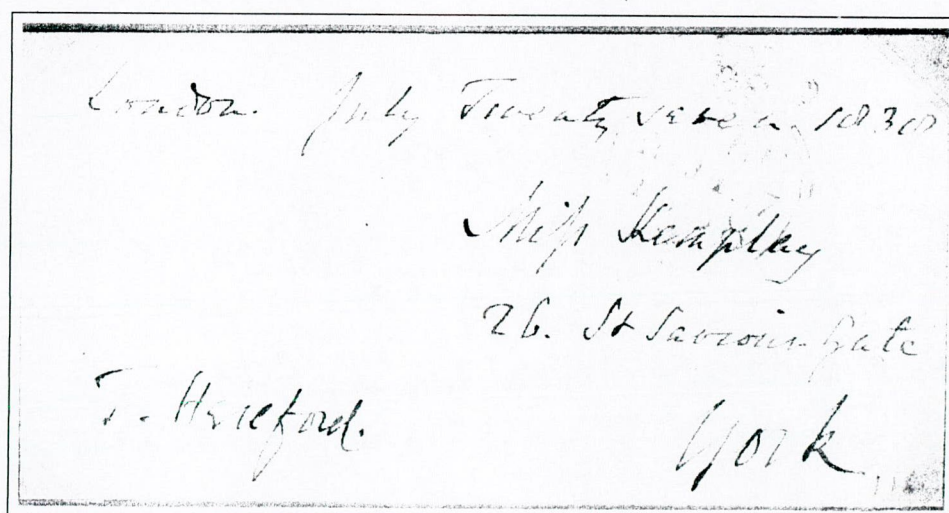 London. July Twenty seven 1838
Miss Kemplay
26. St Saviour Gate
T. Hereford.
York